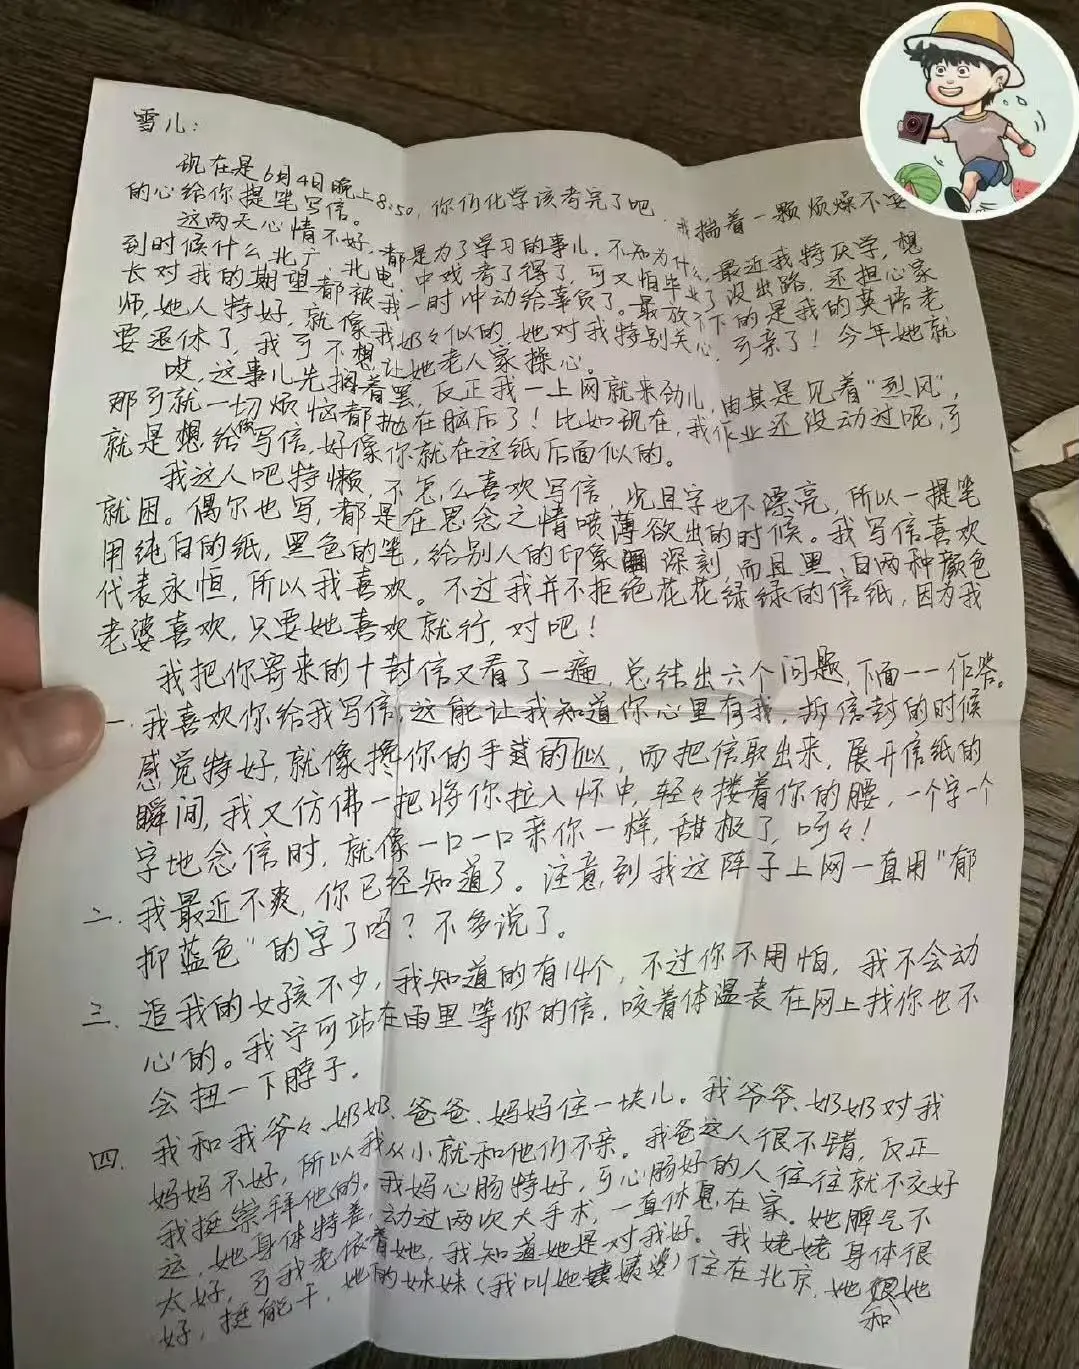 雪儿：
现在是6月4日晚上8:50，你们化学该考完了吧，我揣着一颗烦燥不安
的心给你提笔写信。
这两天心情不好，都是为了学习的事儿，不知为什么，最近我特厌学，想
到时候什么北广、北电、中戏考了得了，可又怕毕业了没出路，还担心家
长对我的期望都被我一时冲动给辜负了。最放不下的是我的英语老
师，她人特好，就像我奶々似的，她对我特别关心，可亲了！今年她就
要退休了，我可不想让她老人家操心。
哎，这事儿先搁着罢，反正我一上网就来劲儿，由其是见着“烈风”，
那可就一切烦恼都抛在脑后了！比如现在，我作业还没动过呢，可
就是想给你写信，好像你就在这纸后面似的。
我这人吧特懒，不怎么喜欢写信，况且字也不漂亮，所以一提笔
就困。偶尔也写，都是在思念之情喷薄欲出的时候。我写信喜欢
用纯白的纸，黑色的笔，给别人的印象深刻，而且黑、白两种颜色
代表永恒，所以我喜欢。不过我并不拒绝花花绿绿的信纸，因为我
老婆喜欢，只要她喜欢就行，对吧！
我把你寄来的十封信又看了一遍，总结出六个问题，下面一一作答。
一、我喜欢你给我写信，这能让我知道你心里有我，拆信封的时候
感觉特好，就像搀你的手似的，而把信取出来，展开信纸的
瞬间，我又仿佛一把将你拉入怀中，轻々搂着你的腰，一个字一个
字地念信时，就像一口一口亲你一样，甜极了，呵々！
二、我最近不爽，你已经知道了。注意到我这阵子上网一直用“郁
抑蓝色”的字了吗？不多说了。
三、追我的女孩不少，我知道的有14个，不过你不用怕，我不会动
心的。我宁可站在雨里等你的信，咬着体温表在网上找你也不
会扭一下脖子。
四、我和我爷々、奶奶、爸爸、妈妈住一块儿。我爷爷、奶奶对我
妈妈不好，所以我从小就和他们不亲。我爸这人很不错，反正
我挺崇拜他的。我妈心肠特好，可心肠好的人往往就不交好
运，她身体特差，动过两次大手术，一直休息在家。她脾气不
太好，可我老依着她，我知道她是对我好。我姥姥身体很
好，挺能干，她的妹妹（我叫她姨婆）住在北京，她和她